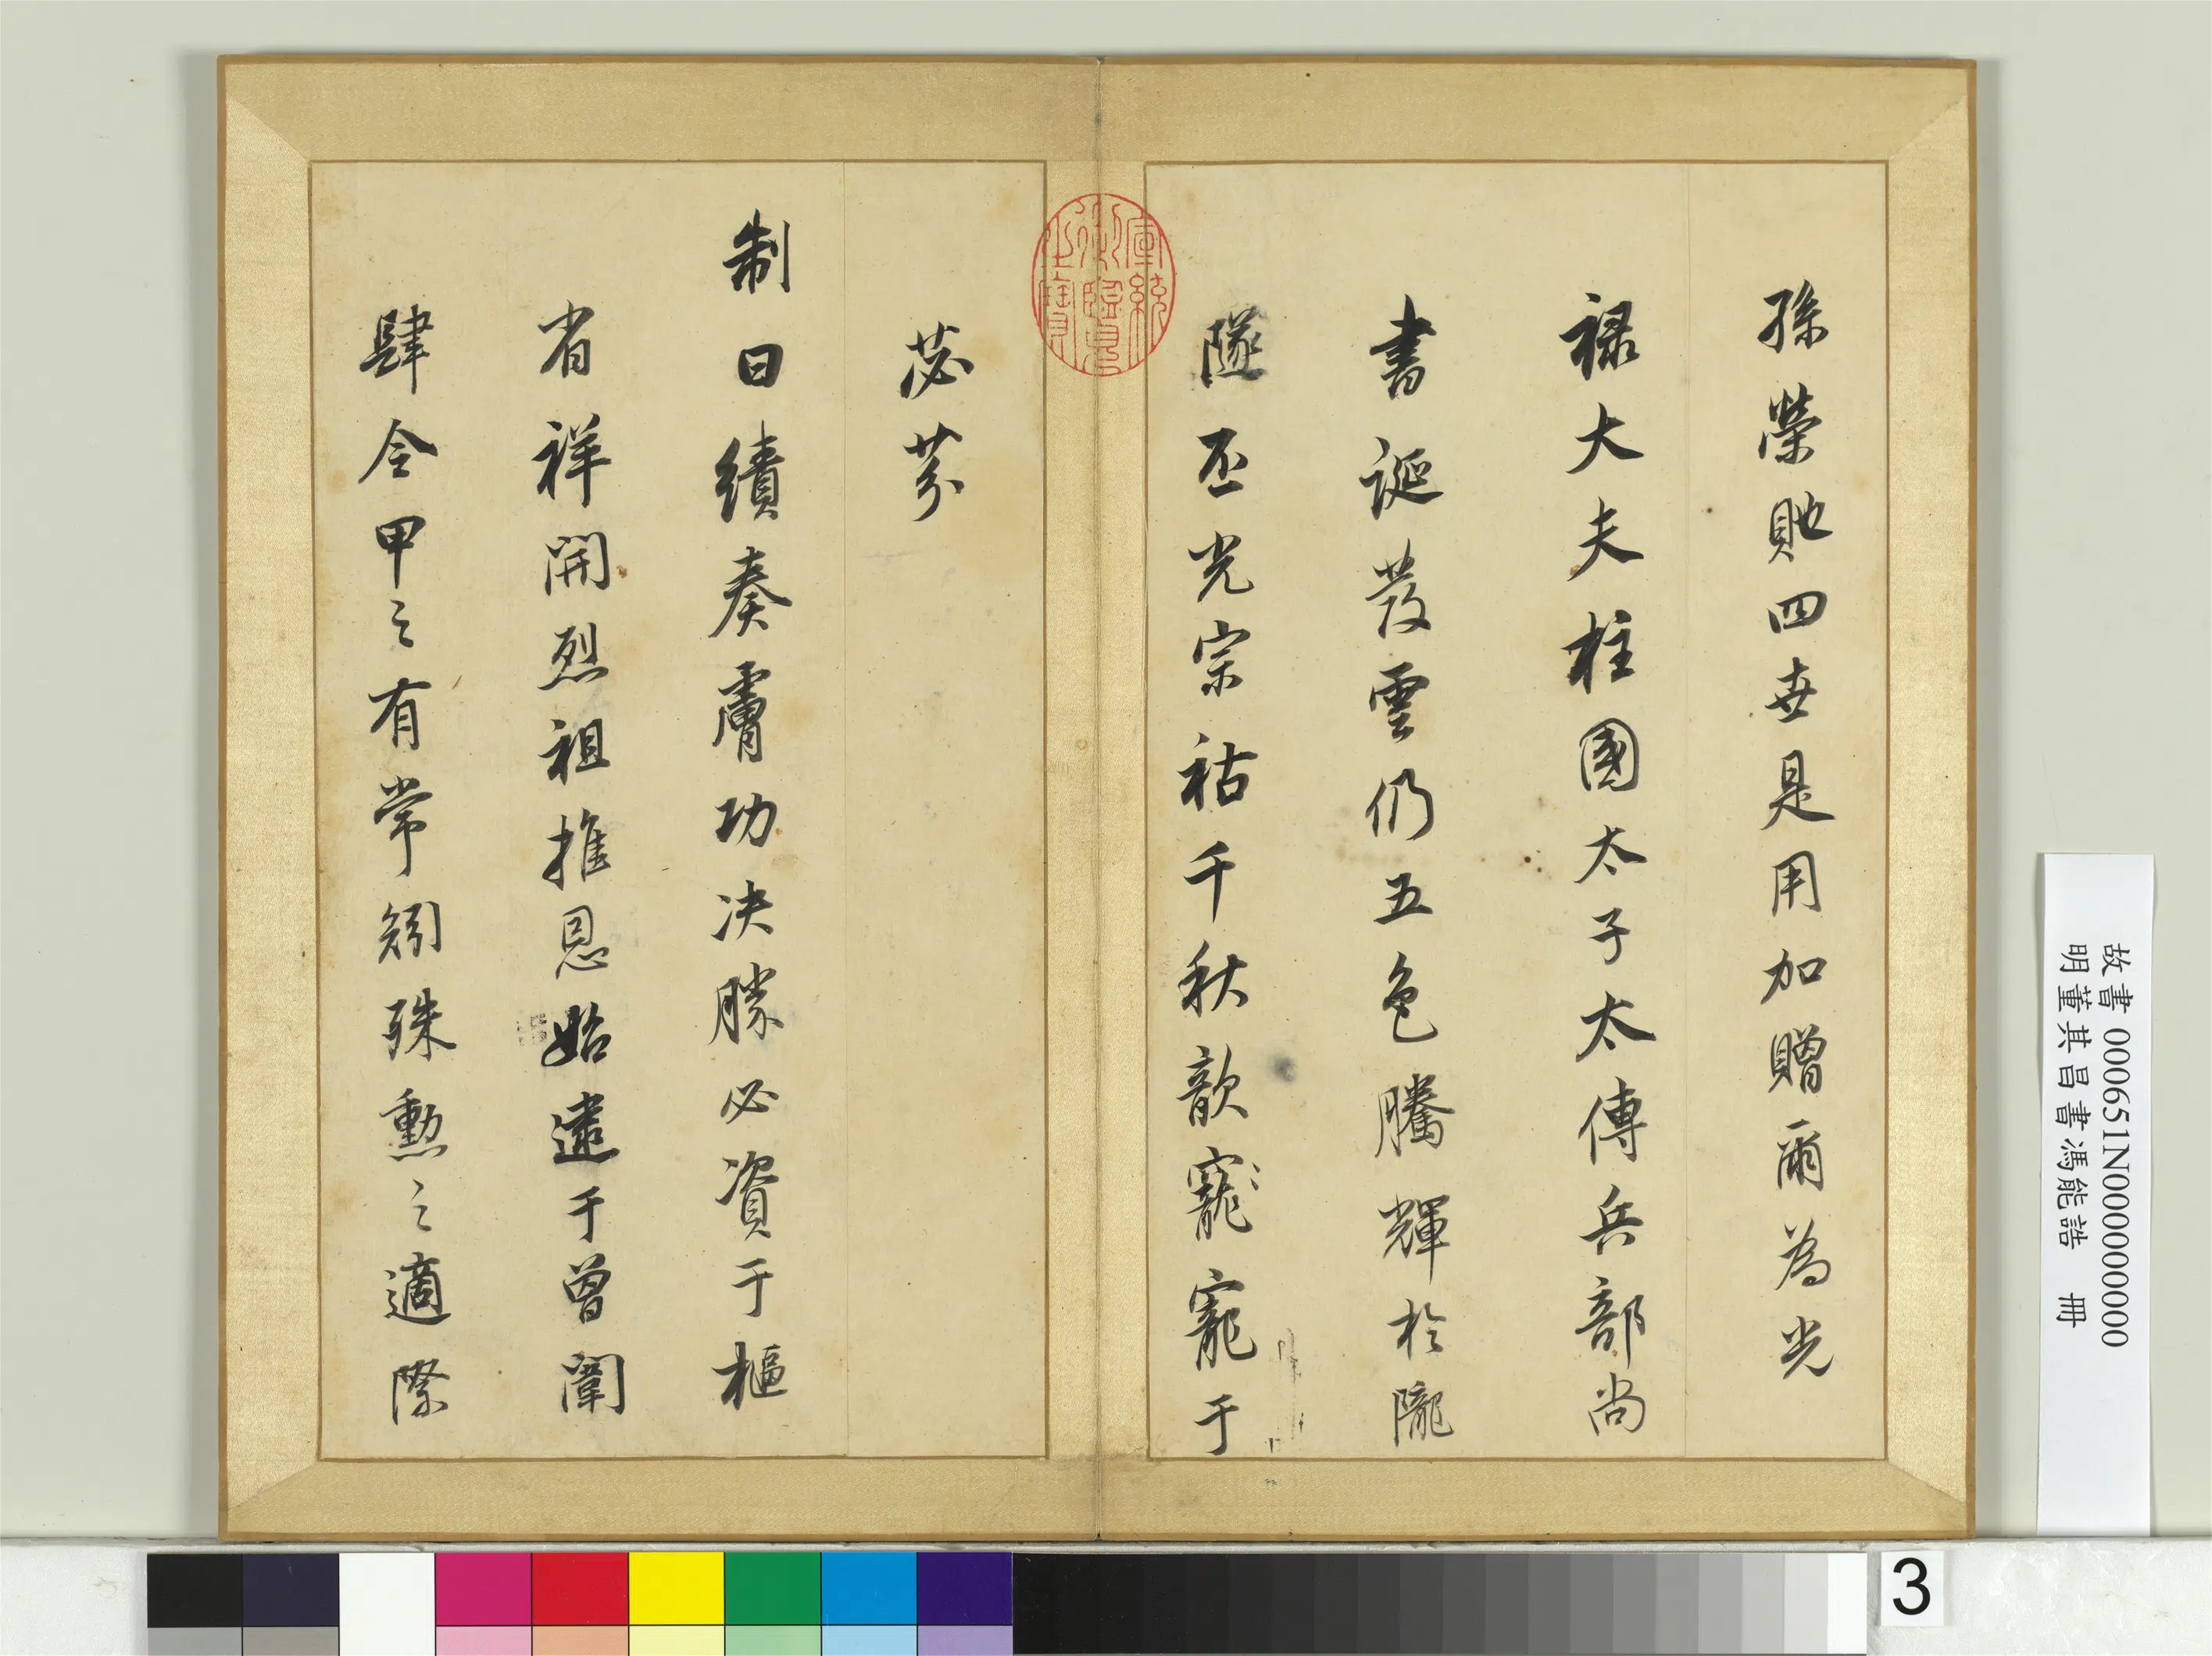 孫榮貤四世是用加贈爾為光
祿大夫柱國太子太傅兵部尚
書誕發雲仍五色騰輝於隴
隧丕光宗祏千秋歆寵寵于
苾芬
制曰績奏膚功决勝必資于樞
省祥開烈祖推恩始逮于曾闈
肆令甲之有常矧殊勲之適際
宣統御覽之寶
故書 000651N000000000
明董其昌書馮能誥 冊
3